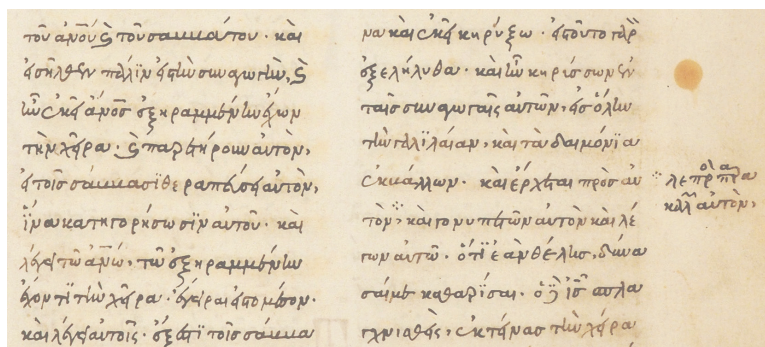 τοῦ ἀν̅ου̅ ϗ τοῦ σαββάτου · καὶ
εἰσῆλθεν πάλϊν εἰς τὴν συναγωγὴν, ϗ
ἦν ἐκεῖ ἄν̅ο̅ς ἐξηραμμένην ἔχων
τὴν χεῖρα · ϗ παρετήρουν αὐτὸν,
εἰ τοῖς σάββασϊ θεραπεύσει αὐτὸν,
ἵνα κατηγορήσωσϊν αὐτοῦ · καὶ
λέγει τῶ ἀν̅ω̅, τῶ ἐξηραμμένην
ἔχοντϊ τὴν χεῖρα · ἔγειραι εἰς τὸ μέσον ·
καὶ λέγει αὐτοῖς · ἔξεστϊ τοῖς σάββα
να καὶ ἐκεῖ κηρύξω · εἰς τοῦτο γὰρ
ἐξελήλυθα · καὶ ἦν κηρύσσων ἐν
ταῖς συναγωγαῖς αὐτῶν, εἰς ὅλην
τὴν γαλϊλαίαν, καὶ τὰ δαιμόνϊα
ἐκβάλλων · καὶ ἔρχεται πρὸς αὐ
τὸν, καὶ γονυπετῶν αὐτὸν καὶ λέ
γων αὐτῶ · ὅτϊ ἐὰν θέλης, δύνα
σαί με καθαρΐσαι · ὁ δὲ ι̅ς̅ σπλα
γχνισθεὶς, ἐκτείνας τὴν χεῖρα
λεπρὸς παρα
καλῶν αὐτὸν,